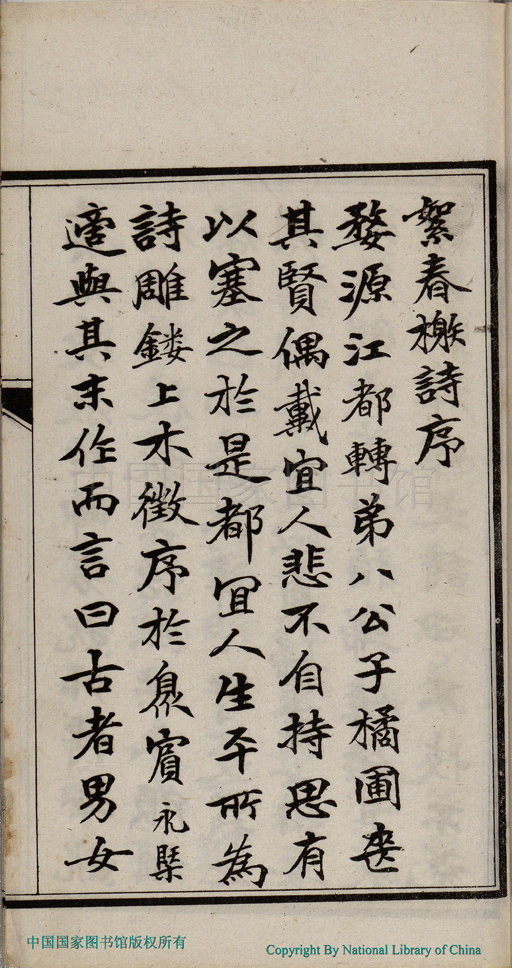 絮春樷詩序
婺源江都轉弟八公子橘圃喪
其賢偶戴宜人悲不自持思有
以塞之於是都宜人生平所為
詩雕鏤上木徵序於眾賓永槩
適與其末作而言曰古者男女
中国国家图书馆
中国国家图书馆版权所有
Copyright By National Library of China